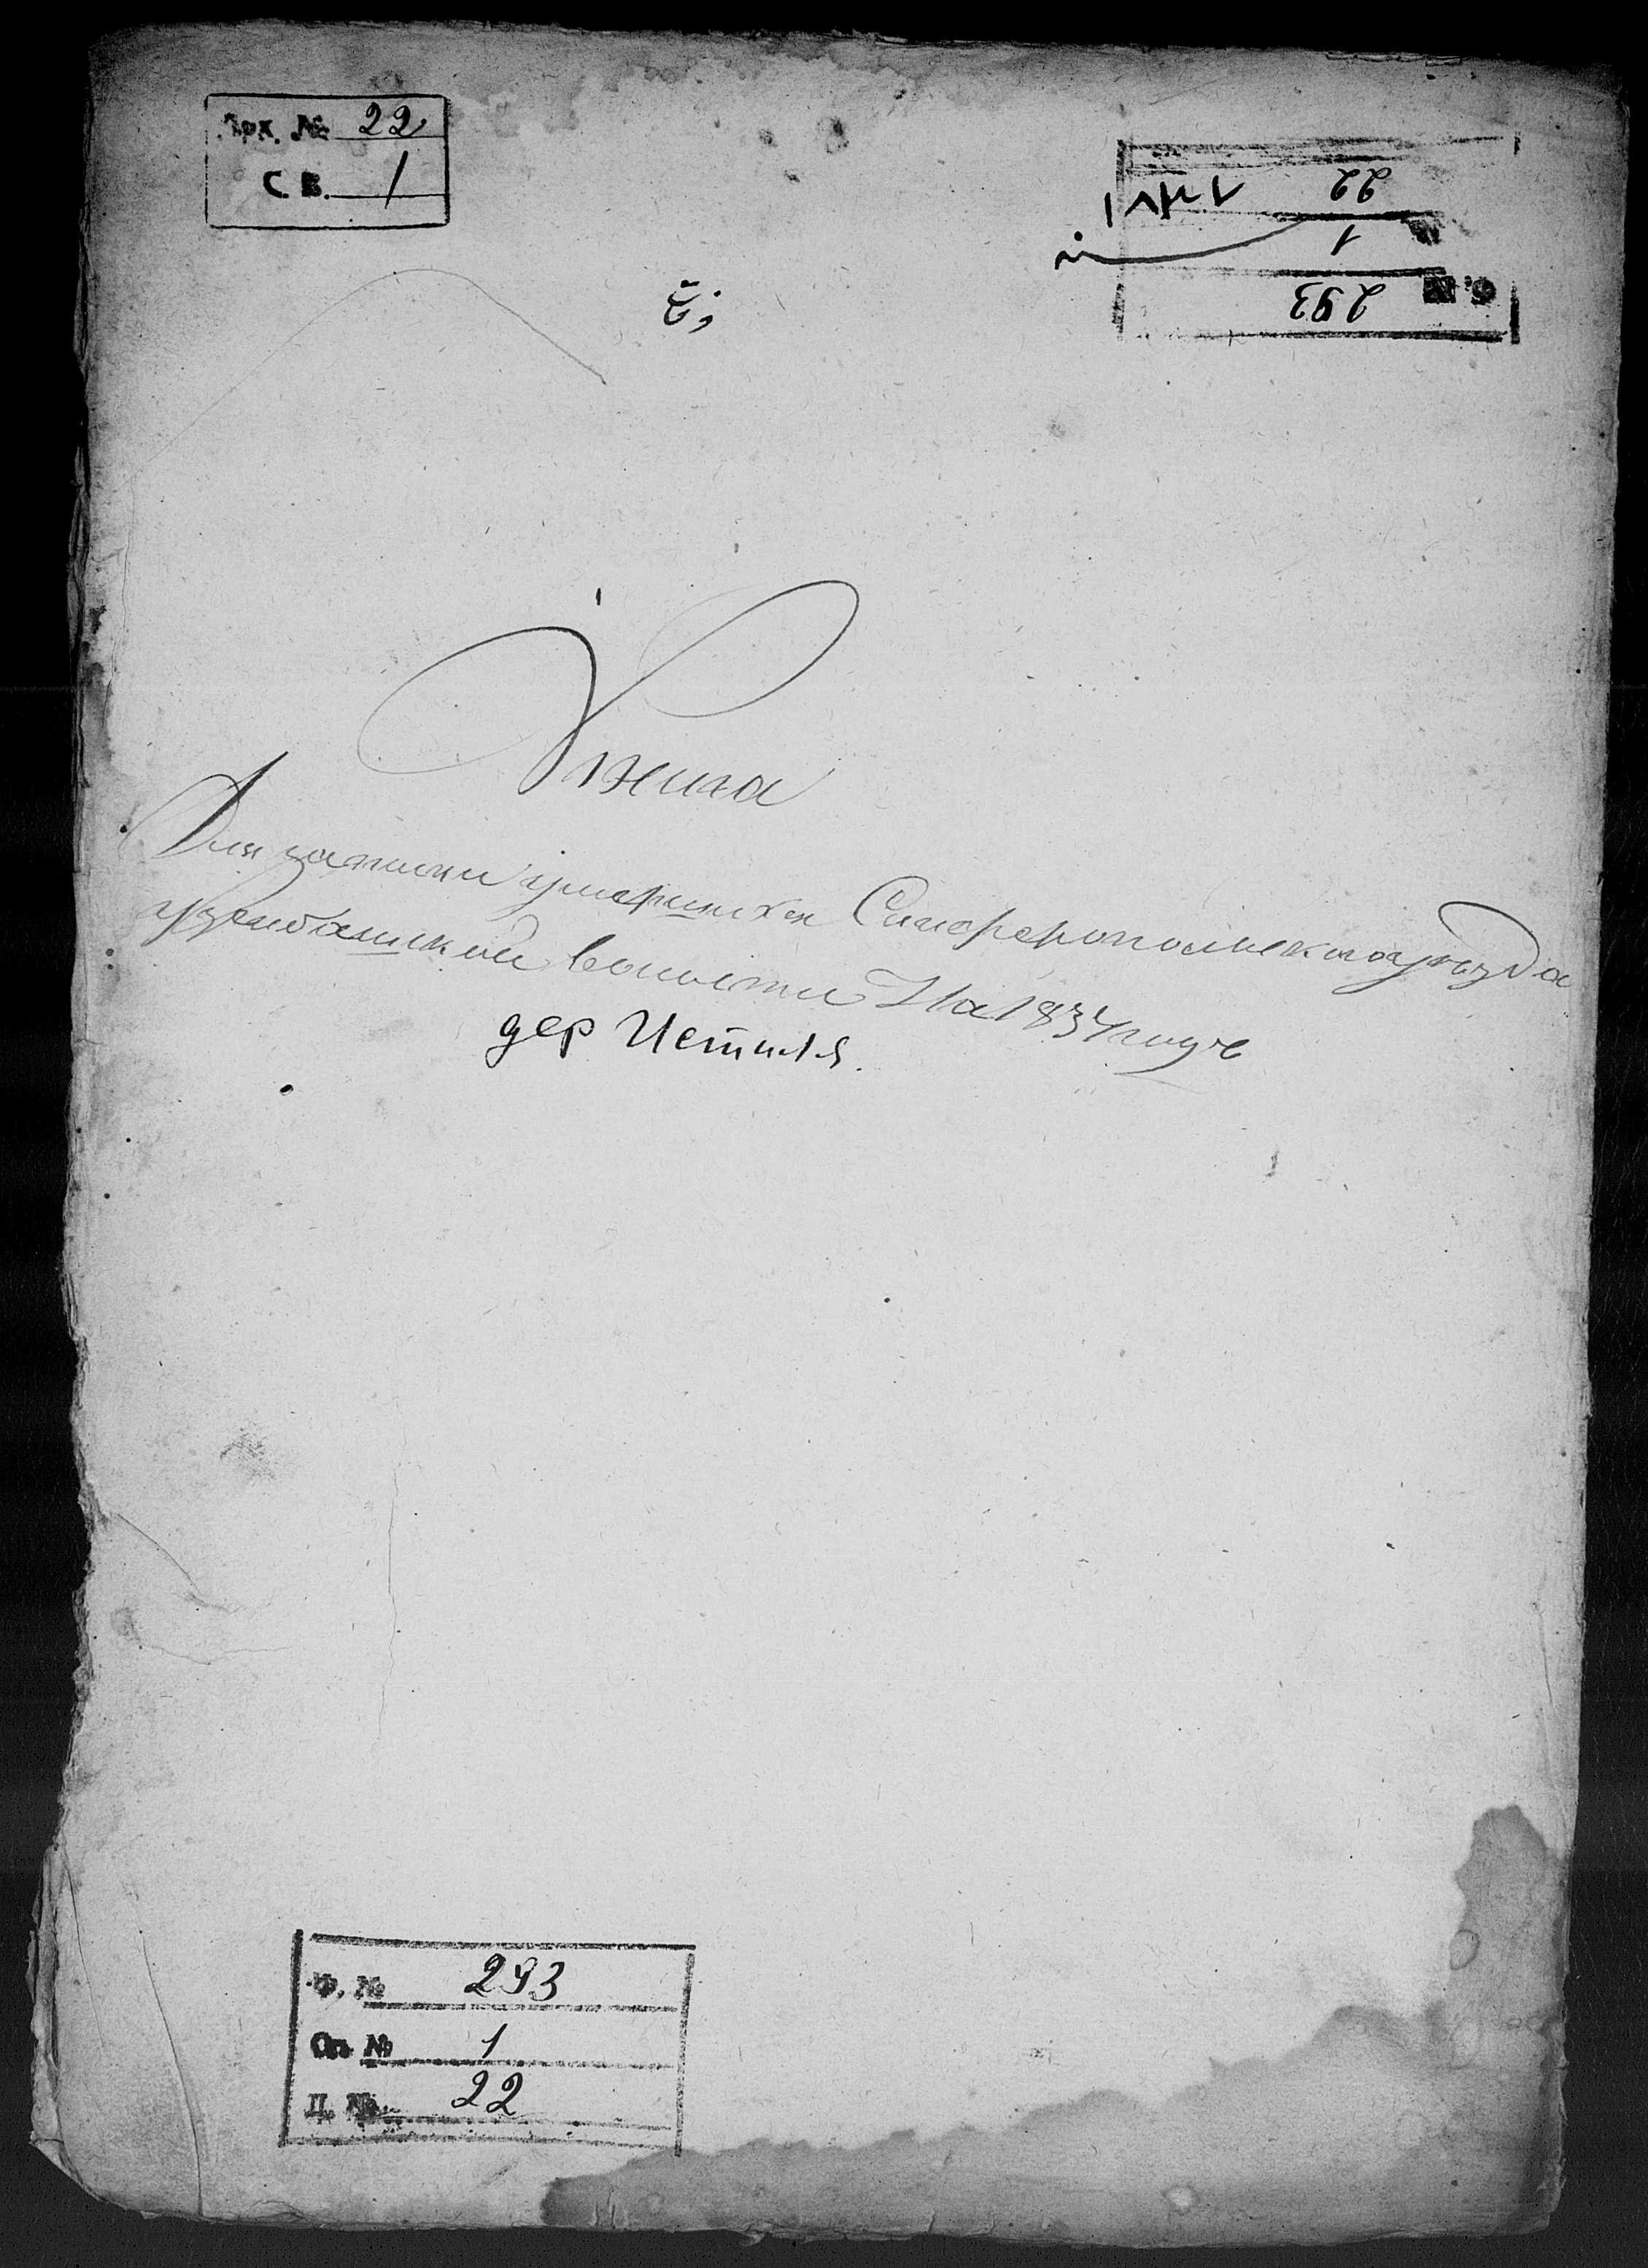 Арх. № 22
С В. 1
22
1
293
Книга
Для записки умершихъ Симферопольского уезда
волости На 1834 годъ
дер Истиля.
Ф. № 293
Оп № 1
Д. № 22